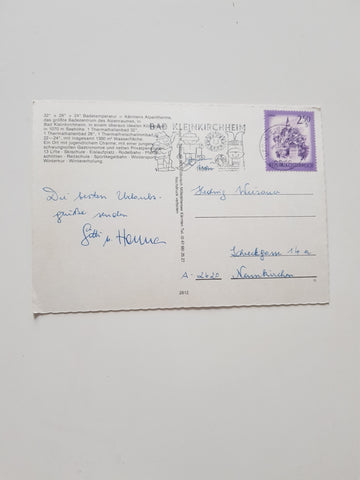 32° + 28° + 24° Badetemperatur = Kärntens Alpentherme,
das größte Badezentrum des Alpenraumes, in
Bad Kleinkirchheim, in einem überaus idealen
in 1070 m Seehöhe: 1 Thermalhallenbad 32°,
1 Thermalhallenbad 28°, 1 Thermalschwimmbad
22–24°, mit insgesamt 1300 m² Wasserfläche.
Ein Ort mit jugendlichem Charme; mit einer jungen,
schwungvollen Gastronomie und netten
13 Lifte · Skischule · Eislaufplatz · Rodelbahn ·
schlitten · Reitschule · Sportkegelbahn · Wintersport
Winterkur · Wintererholung.
BAD KLEINKIRCHHEIM
2.50
REPUBLIK ÖSTERREICH
Die besten Urlaubs-
grüße senden
Gitti u. Hannes
Hedwig
Schreckgasse 16 a
A - 2620 Neunkirchen
2812